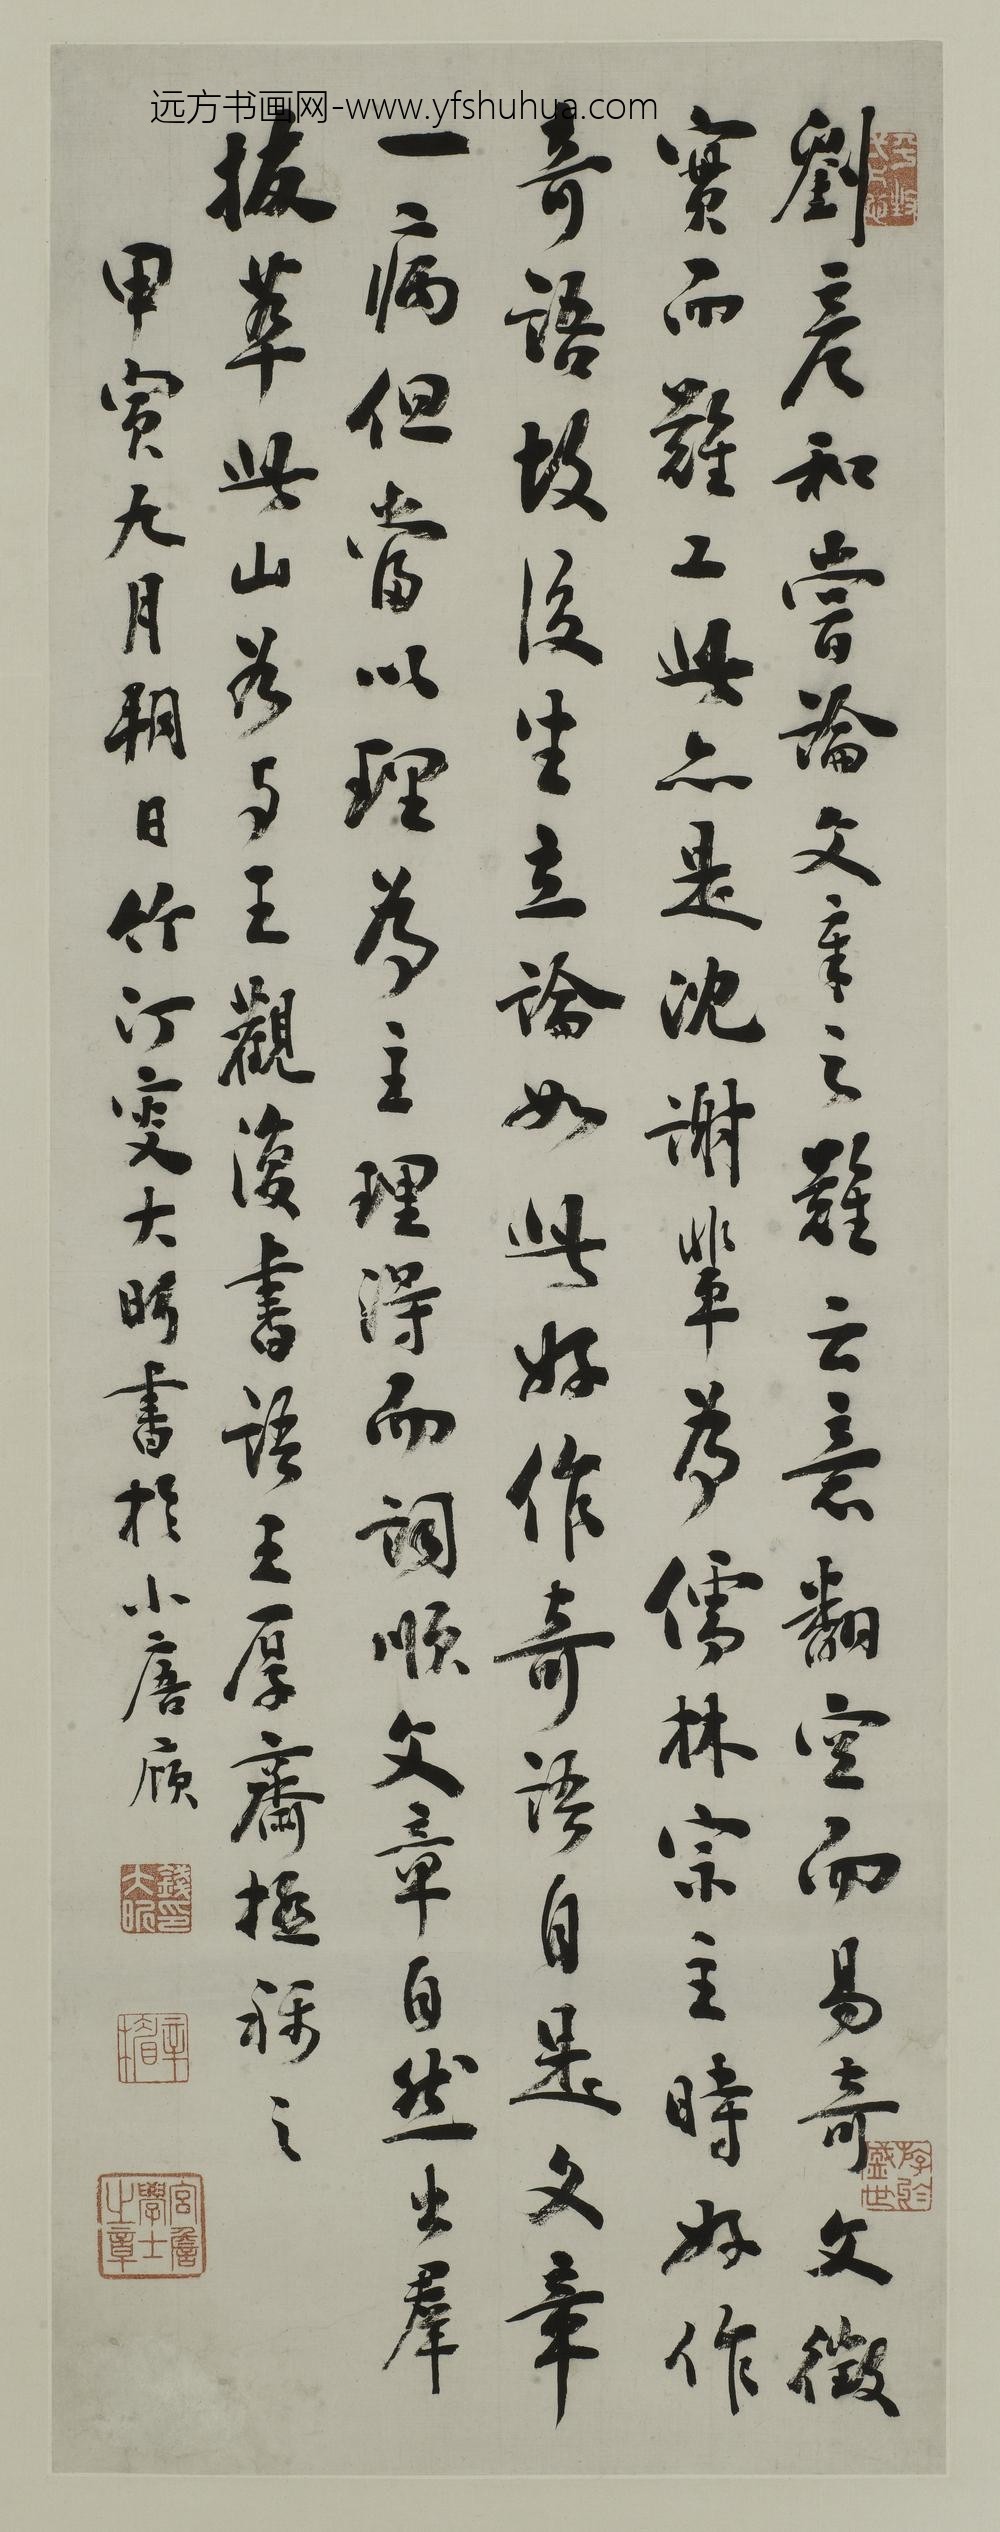 远方书画网-www.yfshuhua.com
劉彦和嘗論文章之難云意翻空而易奇文徵
實而難工此亦是沈謝輩為儒林宗主時好作
奇語故後生立論如此好作奇語自是文章
一病但當以理為主理得而詞順文章自然出羣
拔萃此山谷與王觀復書語王厚齋極稱之
甲寅九月朔日竹汀叟大昕書於小唐廎
錢印大昕
宮詹學士之章